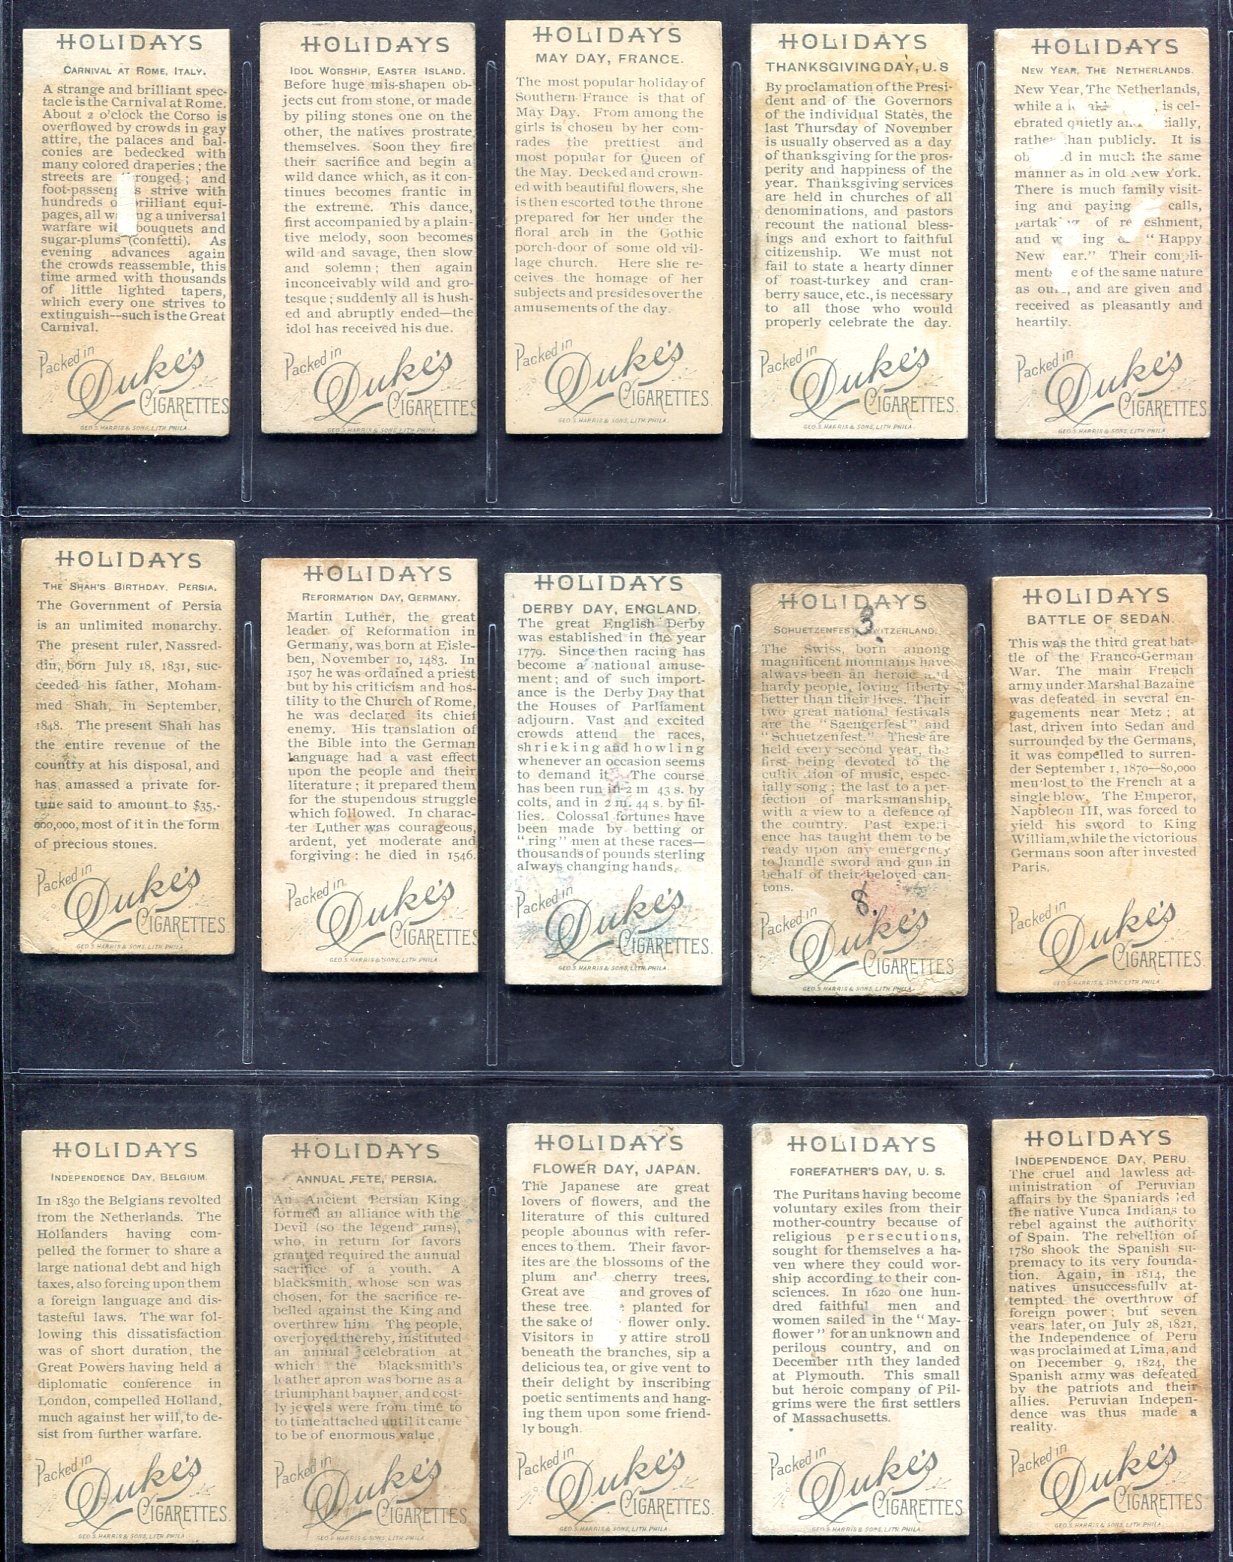 HOLIDAYS
CARNIVAL AT ROME, ITALY.
A strange and brilliant spec-
tacle is the Carnival at Rome.
About 2 o'clock the Corso is
overflowed by crowds in gay
attire, the palaces and bal-
conies are bedecked with
many colored draperies; the
streets are ronged; and
foot-passen s strive with
hundreds o rilliant equi-
pages, all wa ng a universal
warfare wit bouquets and
sugar-plums (confetti). As
evening advances again
the crowds reassemble, this
time armed with thousands
of little lighted tapers,
which every one strives to
extinguish—such is the Great
Carnival.
Packed in
Duke's
CIGARETTES
GEO. S. HARRIS & SONS, LITH. PHILA.
HOLIDAYS
IDOL WORSHIP, EASTER ISLAND.
Before huge mis-shapen ob-
jects cut from stone, or made
by piling stones one on the
other, the natives prostrate
themselves. Soon they fire
their sacrifice and begin a
wild dance which, as it con-
tinues becomes frantic in
the extreme. This dance,
first accompanied by a plain-
tive melody, soon becomes
wild and savage, then slow
and solemn; then again
inconceivably wild and gro-
tesque; suddenly all is hush-
ed and abruptly ended—the
idol has received his due.
Packed in
Duke's
CIGARETTES
GEO. S. HARRIS & SONS, LITH. PHILA.
HOLIDAYS
MAY DAY, FRANCE.
The most popular holiday of
Southern France is that of
May Day. From among the
girls is chosen by her com-
rades the prettiest and
most popular for Queen of
the May. Decked and crown-
ed with beautiful flowers, she
is then escorted to the throne
prepared for her under the
floral arch in the Gothic
porch-door of some old vil-
lage church. Here she re-
ceives the homage of her
subjects and presides over the
amusements of the day.
Packed in
Duke's
CIGARETTES.
GEO. S. HARRIS & SONS, LITH. PHILA.
HOLIDAYS
THANKSGIVING DAY, U.S
By proclamation of the Presi-
dent and of the Governors
of the individual States, the
last Thursday of November
is usually observed as a day
of thanksgiving for the pros-
perity and happiness of the
year. Thanksgiving services
are held in churches of all
denominations, and pastors
recount the national bless-
ings and exhort to faithful
citizenship. We must not
fail to state a hearty dinner
of roast-turkey and cran-
berry sauce, etc., is necessary
to all those who would
properly celebrate the day.
Packed in
Duke's
CIGARETTES.
GEO. S. HARRIS & SONS, LITH. PHILA.
HOLIDAYS
NEW YEAR, THE NETHERLANDS.
New Year, The Netherlands,
while a , is cel-
ebrated quietly an cially,
rather han publicly. It is
ob d in much the same
manner as in old New York.
There is much family visit-
ing and paying calls,
partak of re eshment,
and w ing "Happy
New ear." Their compli-
ment e of the same nature
as ou , and are given and
received as pleasantly and
heartily.
Packed in
Duke's
CIGARETTES.
GEO. S. HARRIS & SONS, LITH. PHILA.
HOLIDAYS
THE SHAH'S BIRTHDAY, PERSIA.
The Government of Persia
is an unlimited monarchy.
The present ruler, Nassred-
din, born July 18, 1831, suc-
ceeded his father, Moham-
med Shah, in September,
1848. The present Shah has
the entire revenue of the
country at his disposal, and
has amassed a private for-
tune said to amount to $35,-
000,000, most of it in the form
of precious stones.
Packed in
Duke's
CIGARETTES.
GEO. S. HARRIS & SONS, LITH. PHILA.
HOLIDAYS
REFORMATION DAY, GERMANY.
Martin Luther, the great
leader of Reformation in
Germany, was born at Eisle-
ben, November 10, 1483. In
1507 he was ordained a priest
but by his criticism and hos-
tility to the Church of Rome,
he was declared its chief
enemy. His translation of
the Bible into the German
language had a vast effect
upon the people and their
literature; it prepared them
for the stupendous struggle
which followed. In charac-
ter Luther was courageous,
ardent, yet moderate and
forgiving: he died in 1546.
Packed in
Duke's
CIGARETTES
GEO. S. HARRIS & SONS, LITH. PHILA.
HOLIDAYS
DERBY DAY, ENGLAND.
The great English Derby
was established in the year
1779. Since then racing has
become a national amuse-
ment; and of such import-
ance is the Derby Day that
the Houses of Parliament
adjourn. Vast and excited
crowds attend the races,
shrieking and howling
whenever an occasion seems
to demand it. The course
has been run in 2 m 43 s. by
colts, and in 2 m. 44 s. by fil-
lies. Colossal fortunes have
been made by betting or
"ring" men at these races—
thousands of pounds sterling
always changing hands.
Packed in
Duke's
CIGARETTES.
GEO. S. HARRIS & SONS, LITH. PHILA.
HOLIDAYS
3
SCHUETZENFEST, WITZERLAND.
The Swiss, born among
magnificent mountains have
always been an heroic and
hardy people, loving liberty
better than their lives. Their
two great national festivals
are the "Saengerfest" and
"Schuetzenfest." These are
held every second year, the
first being devoted to the
cultivation of music, espec-
ially song; the last to a per-
fection of marksmanship,
with a view to a defence of
the country. Past experi-
ence has taught them to be
ready upon any emergency
to handle sword and gun in
behalf of their beloved can-
tons.
8.
Packed in
Duke's
CIGARETTES.
GEO. S. HARRIS & SONS, LITH. PHILA.
HOLIDAYS
BATTLE OF SEDAN.
This was the third great bat-
tle of the Franco-German
War. The main French
army under Marshal Bazaine
was defeated in several en-
gagements near Metz; at
last, driven into Sedan and
surrounded by the Germans,
it was compelled to surren-
der September 1, 1870—80,000
men lost to the French at a
single blow. The Emperor,
Napoleon III, was forced to
yield his sword to King
William, while the victorious
Germans soon after invested
Paris.
Packed in
Duke's
CIGARETTES.
GEO. S. HARRIS & SONS, LITH. PHILA.
HOLIDAYS
INDEPENDENCE DAY, BELGIUM
In 1830 the Belgians revolted
from the Netherlands. The
Hollanders having com-
pelled the former to share a
large national debt and high
taxes, also forcing upon them
a foreign language and dis-
tasteful laws. The war fol-
lowing this dissatisfaction
was of short duration, the
Great Powers having held a
diplomatic conference in
London, compelled Holland,
much against her will, to de-
sist from further warfare.
Packed in
Duke's
CIGARETTES.
GEO. S. HARRIS & SONS, LITH. PHILA.
HOLIDAYS
ANNUAL FETE, PERSIA.
An Ancient Persian King
formed an alliance with the
Devil (so the legend runs),
who, in return for favors
granted required the annual
sacrifice of a youth. A
blacksmith, whose son was
chosen, for the sacrifice re-
belled against the King and
overthrew him. The people,
overjoyed thereby, instituted
an annual celebration at
which the blacksmith's
leather apron was borne as a
triumphant banner, and cost-
ly jewels were from time to
to time attached until it came
to be of enormous value.
Packed in
Duke's
CIGARETTES.
GEO. S. HARRIS & SONS, LITH. PHILA.
HOLIDAYS
FLOWER DAY, JAPAN.
The Japanese are great
lovers of flowers, and the
literature of this cultured
people abounds with refer-
ences to them. Their favor-
ites are the blossoms of the
plum and cherry trees.
Great ave and groves of
these tree e planted for
the sake of flower only.
Visitors in y attire stroll
beneath the branches, sip a
delicious tea, or give vent to
their delight by inscribing
poetic sentiments and hang-
ing them upon some friend-
ly bough.
Packed in
Duke's
CIGARETTES.
GEO. S. HARRIS & SONS, LITH. PHILA.
HOLIDAYS
FOREFATHER'S DAY, U. S.
The Puritans having become
voluntary exiles from their
mother-country because of
religious persecutions,
sought for themselves a ha-
ven where they could wor-
ship according to their con-
sciences. In 1620 one hun-
dred faithful men and
women sailed in the "May-
flower" for an unknown and
perilous country, and on
December 11th they landed
at Plymouth. This small
but heroic company of Pil-
grims were the first settlers
of Massachusetts.
Packed in
Duke's
CIGARETTES.
GEO. S. HARRIS & SONS, LITH. PHILA.
HOLIDAYS
INDEPENDENCE DAY, PERU
The cruel and lawless ad-
ministration of Peruvian
affairs by the Spaniards led
the native Yunca Indians to
rebel against the authority
of Spain. The rebellion of
1780 shook the Spanish su-
premacy to its very founda-
tion. Again, in 1814, the
natives unsuccessfully at-
tempted the overthrow of
foreign power; but seven
years later, on July 28, 1821,
the Independence of Peru
was proclaimed at Lima, and
on December 9, 1824, the
Spanish army was defeated
by the patriots and their
allies. Peruvian Indepen-
dence was thus made a
reality.
Packed in
Duke's
CIGARETTES.
GEO. S. HARRIS & SONS, LITH. PHILA.